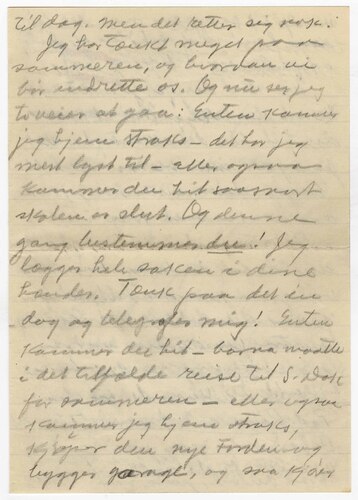 til dag. men det retter sig nok.
Jeg har tænkt meget paa
sommeren, og hvordan vi
bør indrette os. Og nu ser jeg
to veier at gaa: Enten kommer
jeg hjem straks – det har jeg
mest lyst til – eller ogsaa
kommer du hit saasnart
skolen er slut. Og denne
gang bestemmer du! Jeg
lægger hele saken i dine
hænder. Tænk paa det en
dag og telegrafer mig! Enten
kommer du hit – barna maatte
i det tilfælde reise til S. Dak
for sommeren – eller ogsaa
kommer jeg hjem straks,
kjøper den nye Forden og
bygger garage, og saa kjører